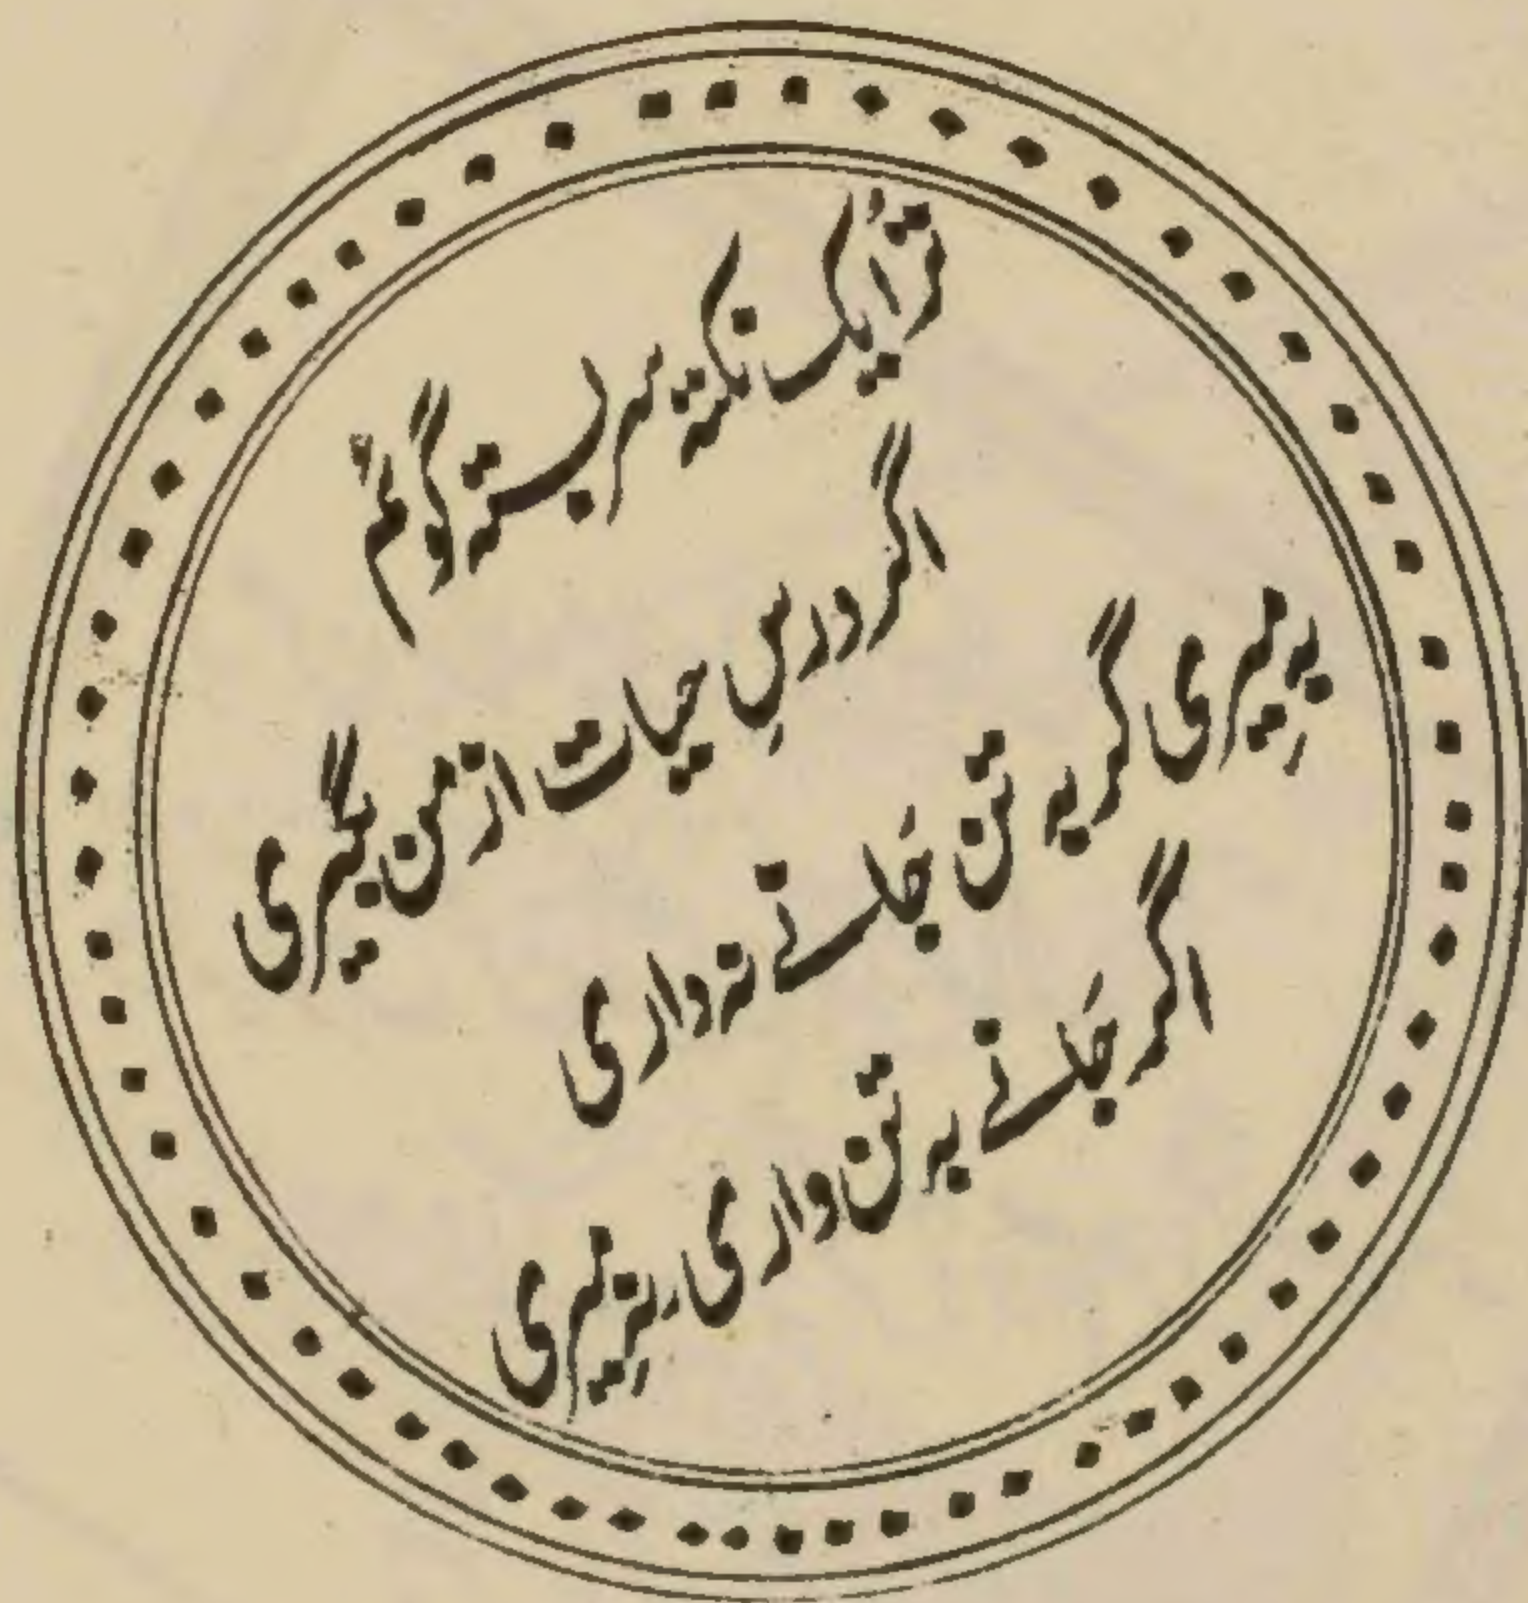 ترا یک نکتہ سر بستہ گوئم
اگر درسِ حیات از من بگیری
بہ مِیری گر بہ تن جَانے نہ داری
اگر جَانے بہ تن داری نہ مِیری